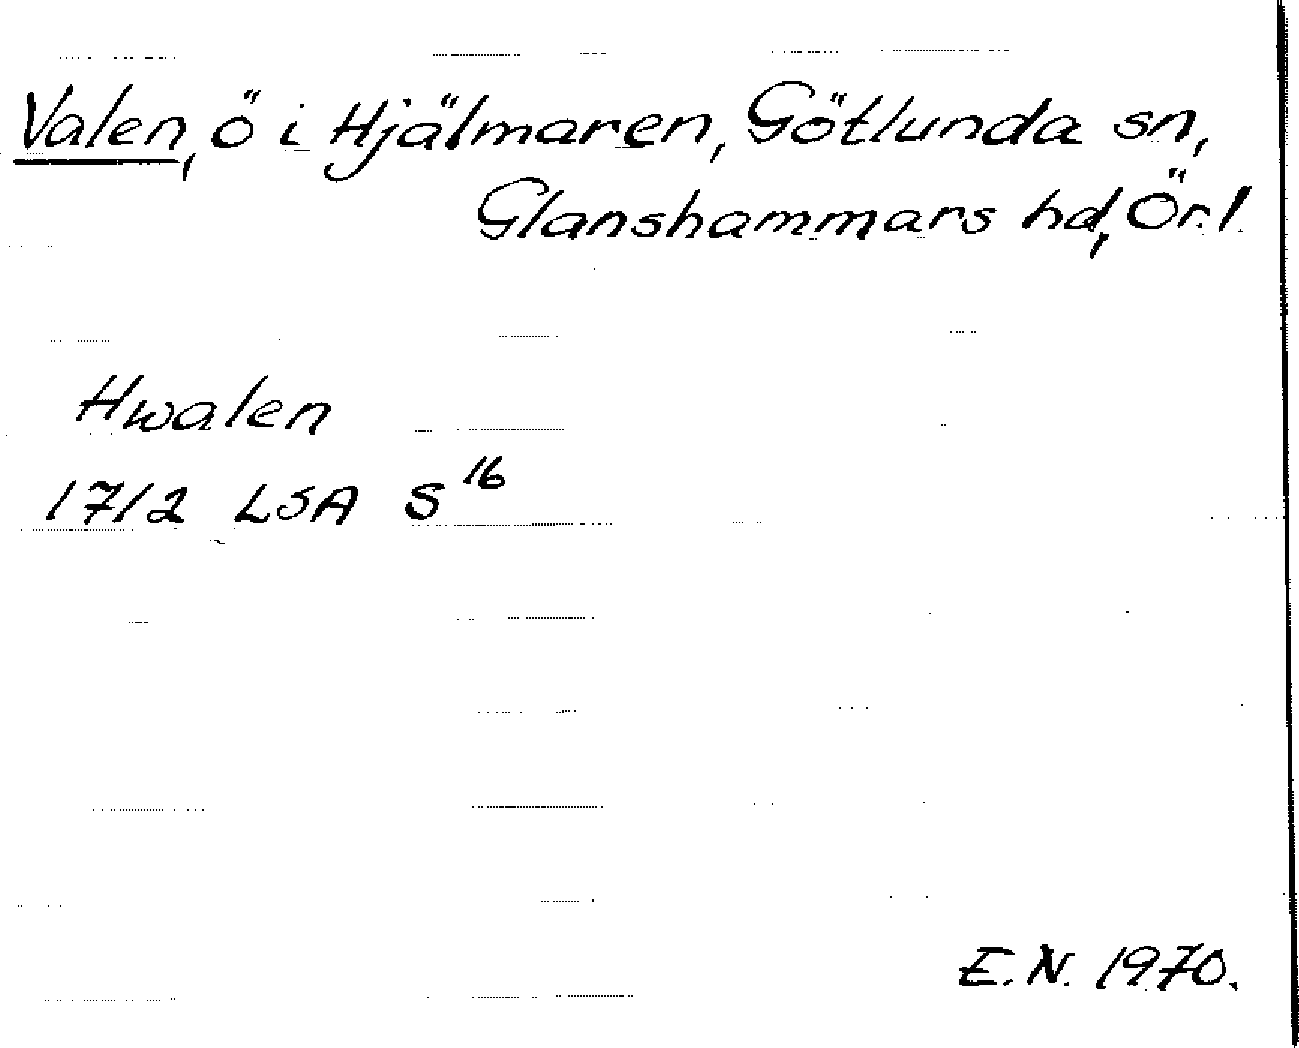 Valen, ö i Hjälmaren, Götlunda sn,
Glanshammars hd, Ör. l.
Hwalen
1712 LSA S 16
E.N. 1970.